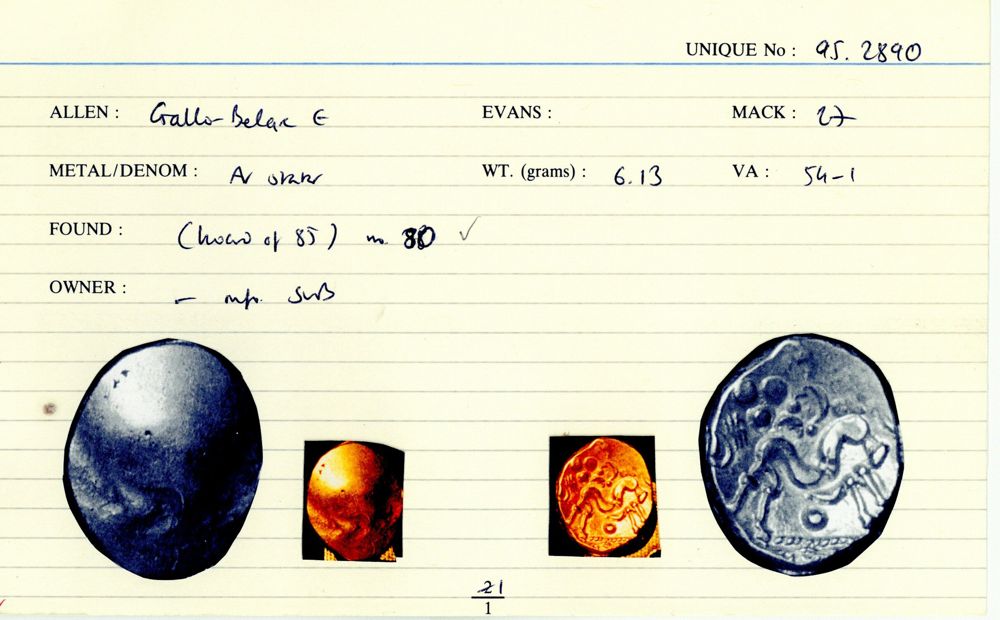 UNIQUE No : 95. 2890
ALLEN : Gallo-Belgic E EVANS : MACK : 27
METAL/DENOM : AV stater WT. (grams) : 6.13 VA : 54-1
FOUND : (hoard of 85) no. 80 ✓
OWNER : –
21
1